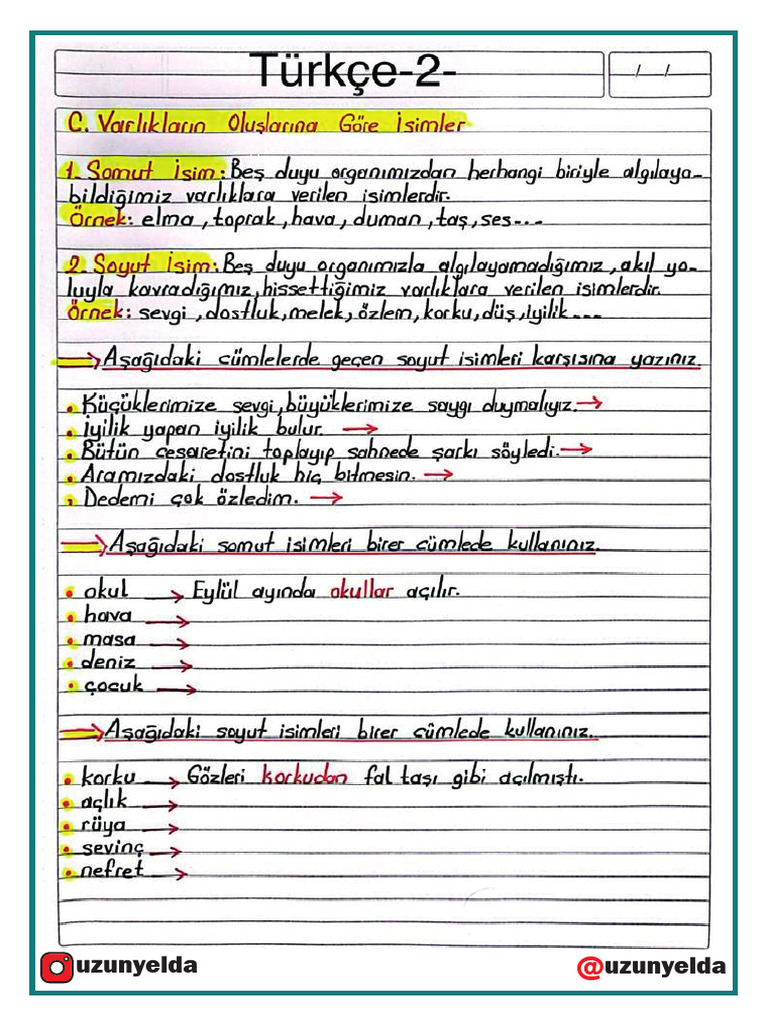 Türkçe-2-
/ /
C. Varlıkların Oluşlarına Göre İsimler
1. Somut İsim: Beş duyu organımızdan herhangi biriyle algılaya-
bildiğimiz varlıklara verilen isimlerdir.
Örnek: elma, toprak, hava, duman, taş, ses...
2. Soyut İsim: Beş duyu organımızla algılayamadığımız, akıl yo-
luyla kavradığımız, hissettiğimiz varlıklara verilen isimlerdir.
Örnek: sevgi, dostluk, melek, özlem, korku, düş, iyilik...
→ Aşağıdaki cümlelerde geçen soyut isimleri karşısına yazınız.
• Küçüklerimize sevgi, büyüklerimize saygı duymalıyız. →
• İyilik yapan iyilik bulur. →
• Bütün cesaretini toplayıp sahnede şarkı söyledi. →
• Aramızdaki dostluk hiç bitmesin. →
• Dedemi çok özledim. →
→ Aşağıdaki somut isimleri birer cümlede kullanınız.
• okul → Eylül ayında okullar açılır.
• hava →
• masa →
• deniz →
• çocuk →
→ Aşağıdaki soyut isimleri birer cümlede kullanınız.
• korku → Gözleri korkudan fal taşı gibi açılmıştı.
• açlık →
• rüya →
• sevinç →
• nefret →
uzunyelda
@uzunyelda